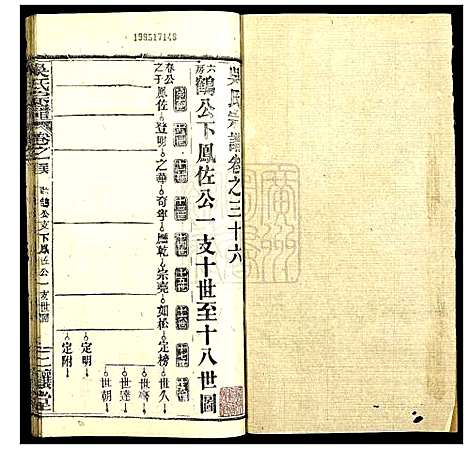 199517148
吳氏宗譜卷之三十六
六房鶴公下鳳佐公一支十世至十八世圖
春公之子
鳳佐
登明
之華
奇寧
應乾
宗堯
如松
定榜
世久
世亭
世達
世朝
定明
定附
吳氏宗譜
卷之三六
鶴公支下鳳佐公一支世圖
堂